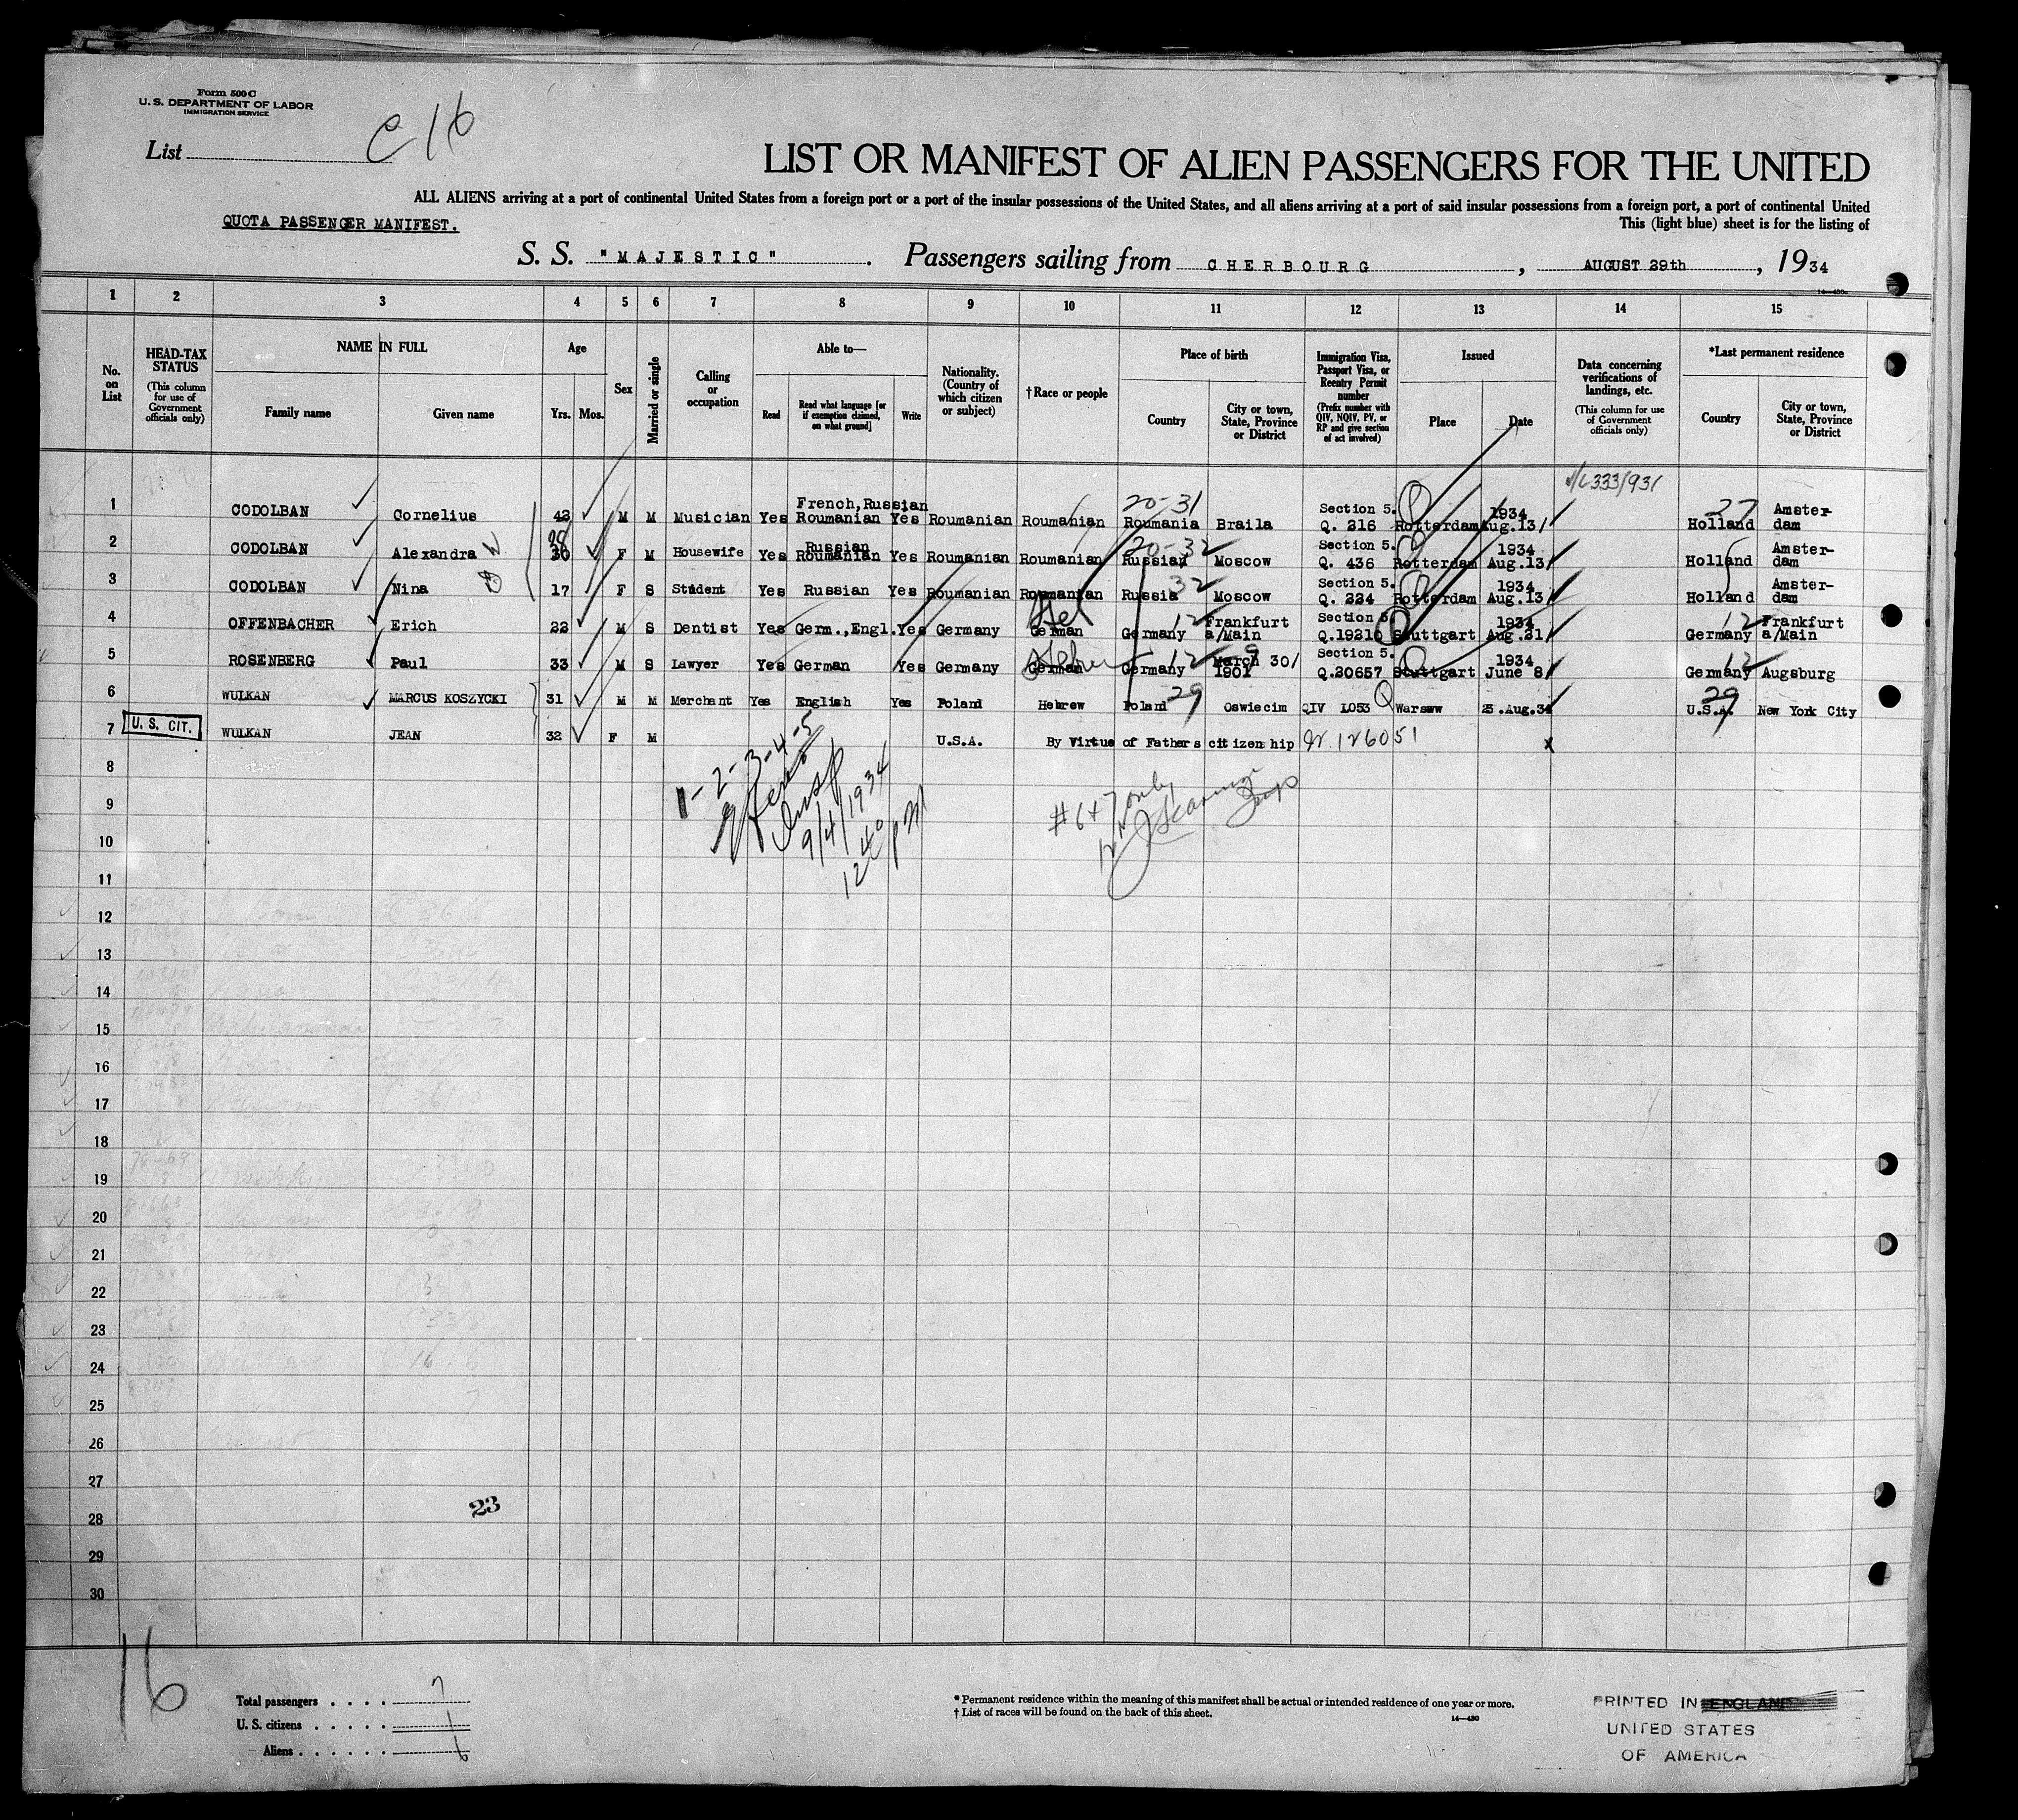 Form 500 C
U. S. DEPARTMENT OF LABOR
IMMIGRATION SERVICE
List C 16
LIST OR MANIFEST OF ALIEN PASSENGERS FOR THE UNITED
ALL ALIENS arriving at a port of continental United States from a foreign port or a port of the insular possessions of the United States, and all aliens arriving at a port of said insular possessions from a foreign port, a port of continental United
QUOTA PASSENGER MANIFEST.
This (light blue) sheet is for the listing of
S. S. "MAJESTIC" . Passengers sailing from CHERBOURG , AUGUST 29th , 1934
1 2 3 4 5 6 7 8 9 10 11 12 13 14 15
No. on List
HEAD-TAX STATUS (This column for use of Government officials only)
NAME IN FULL
Family name Given name
Age
Yrs. Mos.
Sex
Married or single
Calling or occupation
Able to—
Read Read what language [or if exemption claimed, on what ground] Write
Nationality. (Country of which citizen or subject)
† Race or people
Place of birth
Country City or town, State, Province or District
Immigration Visa, Passport Visa, or Reentry Permit number (Prefix number with QIV, NQIV, PV, or RP and give section of act involved)
Issued
Place Date
Data concerning verifications of landings, etc. (This column for use of Government officials only)
*Last permanent residence
Country City or town, State, Province or District
1 CODOLBAN Cornelius 43 M M Musician Yes French, Russian Roumanian Yes Roumanian Roumanian 20-31 Roumania Braila Section 5. Q. 216 Rotterdam 1934 Aug.13/ 27 Holland Amster-dam
2 CODOLBAN Alexandra 30 F M Housewife Yes Russian Roumanian Yes Roumanian Roumanian 20-32 Russian Moscow Section 5. Q. 436 Rotterdam 1934 Aug.13/ Holland Amster-dam
3 CODOLBAN Nina 17 F S Student Yes Russian Yes Roumanian Roumanian 32 Russia Moscow Section 5. Q. 224 Rotterdam 1934 Aug.13/ Holland Amster-dam
4 OFFENBACHER Erich 22 M S Dentist Yes Germ.,Engl. Yes Germany German Heb 12 Germany Frankfurt a/Main Section 5. Q.19210 Stuttgart 1934 Aug.21/ 12 Germany Frankfurt a/Main
5 ROSENBERG Paul 33 M S Lawyer Yes German Yes Germany German 12 Germany March 30/ 1901 Section 5. Q.20657 Stuttgart 1934 June 8/ 12 Germany Augsburg
6 WULKAN MARCUS KOSZYCKI 31 M M Merchant Yes English Yes Poland Hebrew Poland 29 Oswiecim QIV 1053 Warsww 23.Aug.34 29 U.S.A. New York City
7 U. S. CIT. WULKAN JEAN 32 F M U.S.A. By Virtue of Fathers citizenhip 126051 x
8
1-2-3-4-5
Insp
9/4/1934
12 40 PM
# 6 + 7 only
9
10
11
12
13
14
15
16
17
18
19
20
21
22
23
24
25
26
27
28
29
30
23
16
Total passengers . . . . 7
U. S. citizens . . . . . 1
Aliens . . . . . . 6
* Permanent residence within the meaning of this manifest shall be actual or intended residence of one year or more.
† List of races will be found on the back of this sheet.
14—430
PRINTED IN ENGLAND
UNITED STATES
OF AMERICA